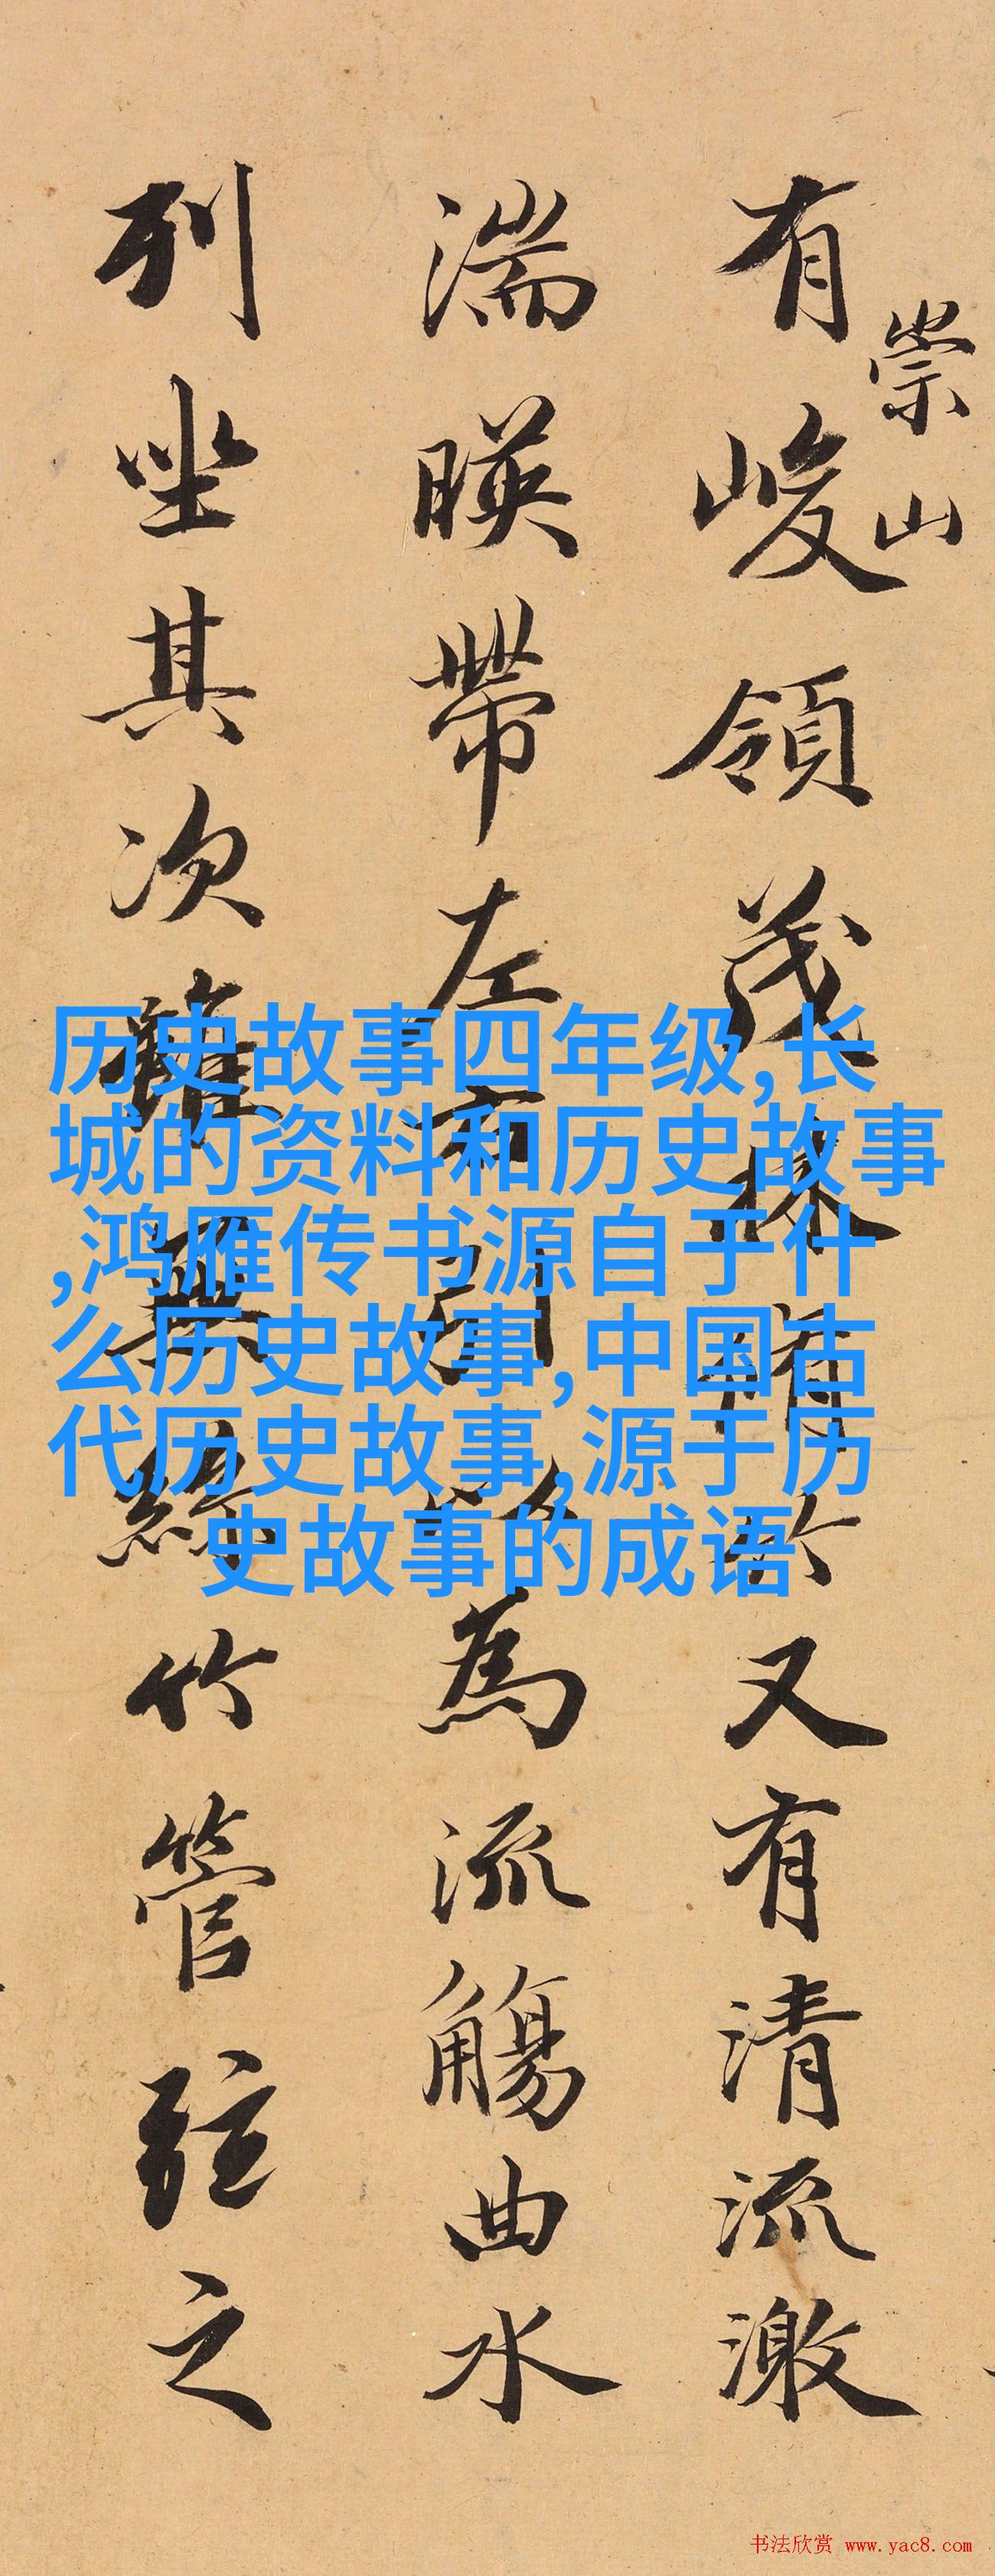 崇山
有峻領茂林脩竹又有清流激
湍暎帶左右引以為流觴曲水
列坐其次雖無絲竹管弦之
历史故事四年级,长
城的资料和历史故事
,鸿雁传书源自于什
么历史故事,中国古
代历史故事,源于历
史故事的成语
书法欣赏 www.yac8.com